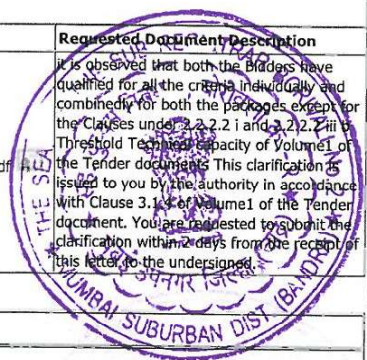 Requested Document Description
it is observed that both the Bidders have
qualified for all the criteria individually and
combinedly for both the packages except for
the Clauses under 2.2.2.2 i and 2.2.2.2 iii b
Threshold Technical Capacity of Volume1 of
df
the Tender documents This clarification is
issued to you by the authority in accordance
with Clause 3.1.4 of Volume1 of the Tender
document. You are requested to submit the
clarification within 2 days from the receipt of
this letter to the undersigned.
THE SEA
MUMBAI SUBURBAN DIST. (BANDRA)